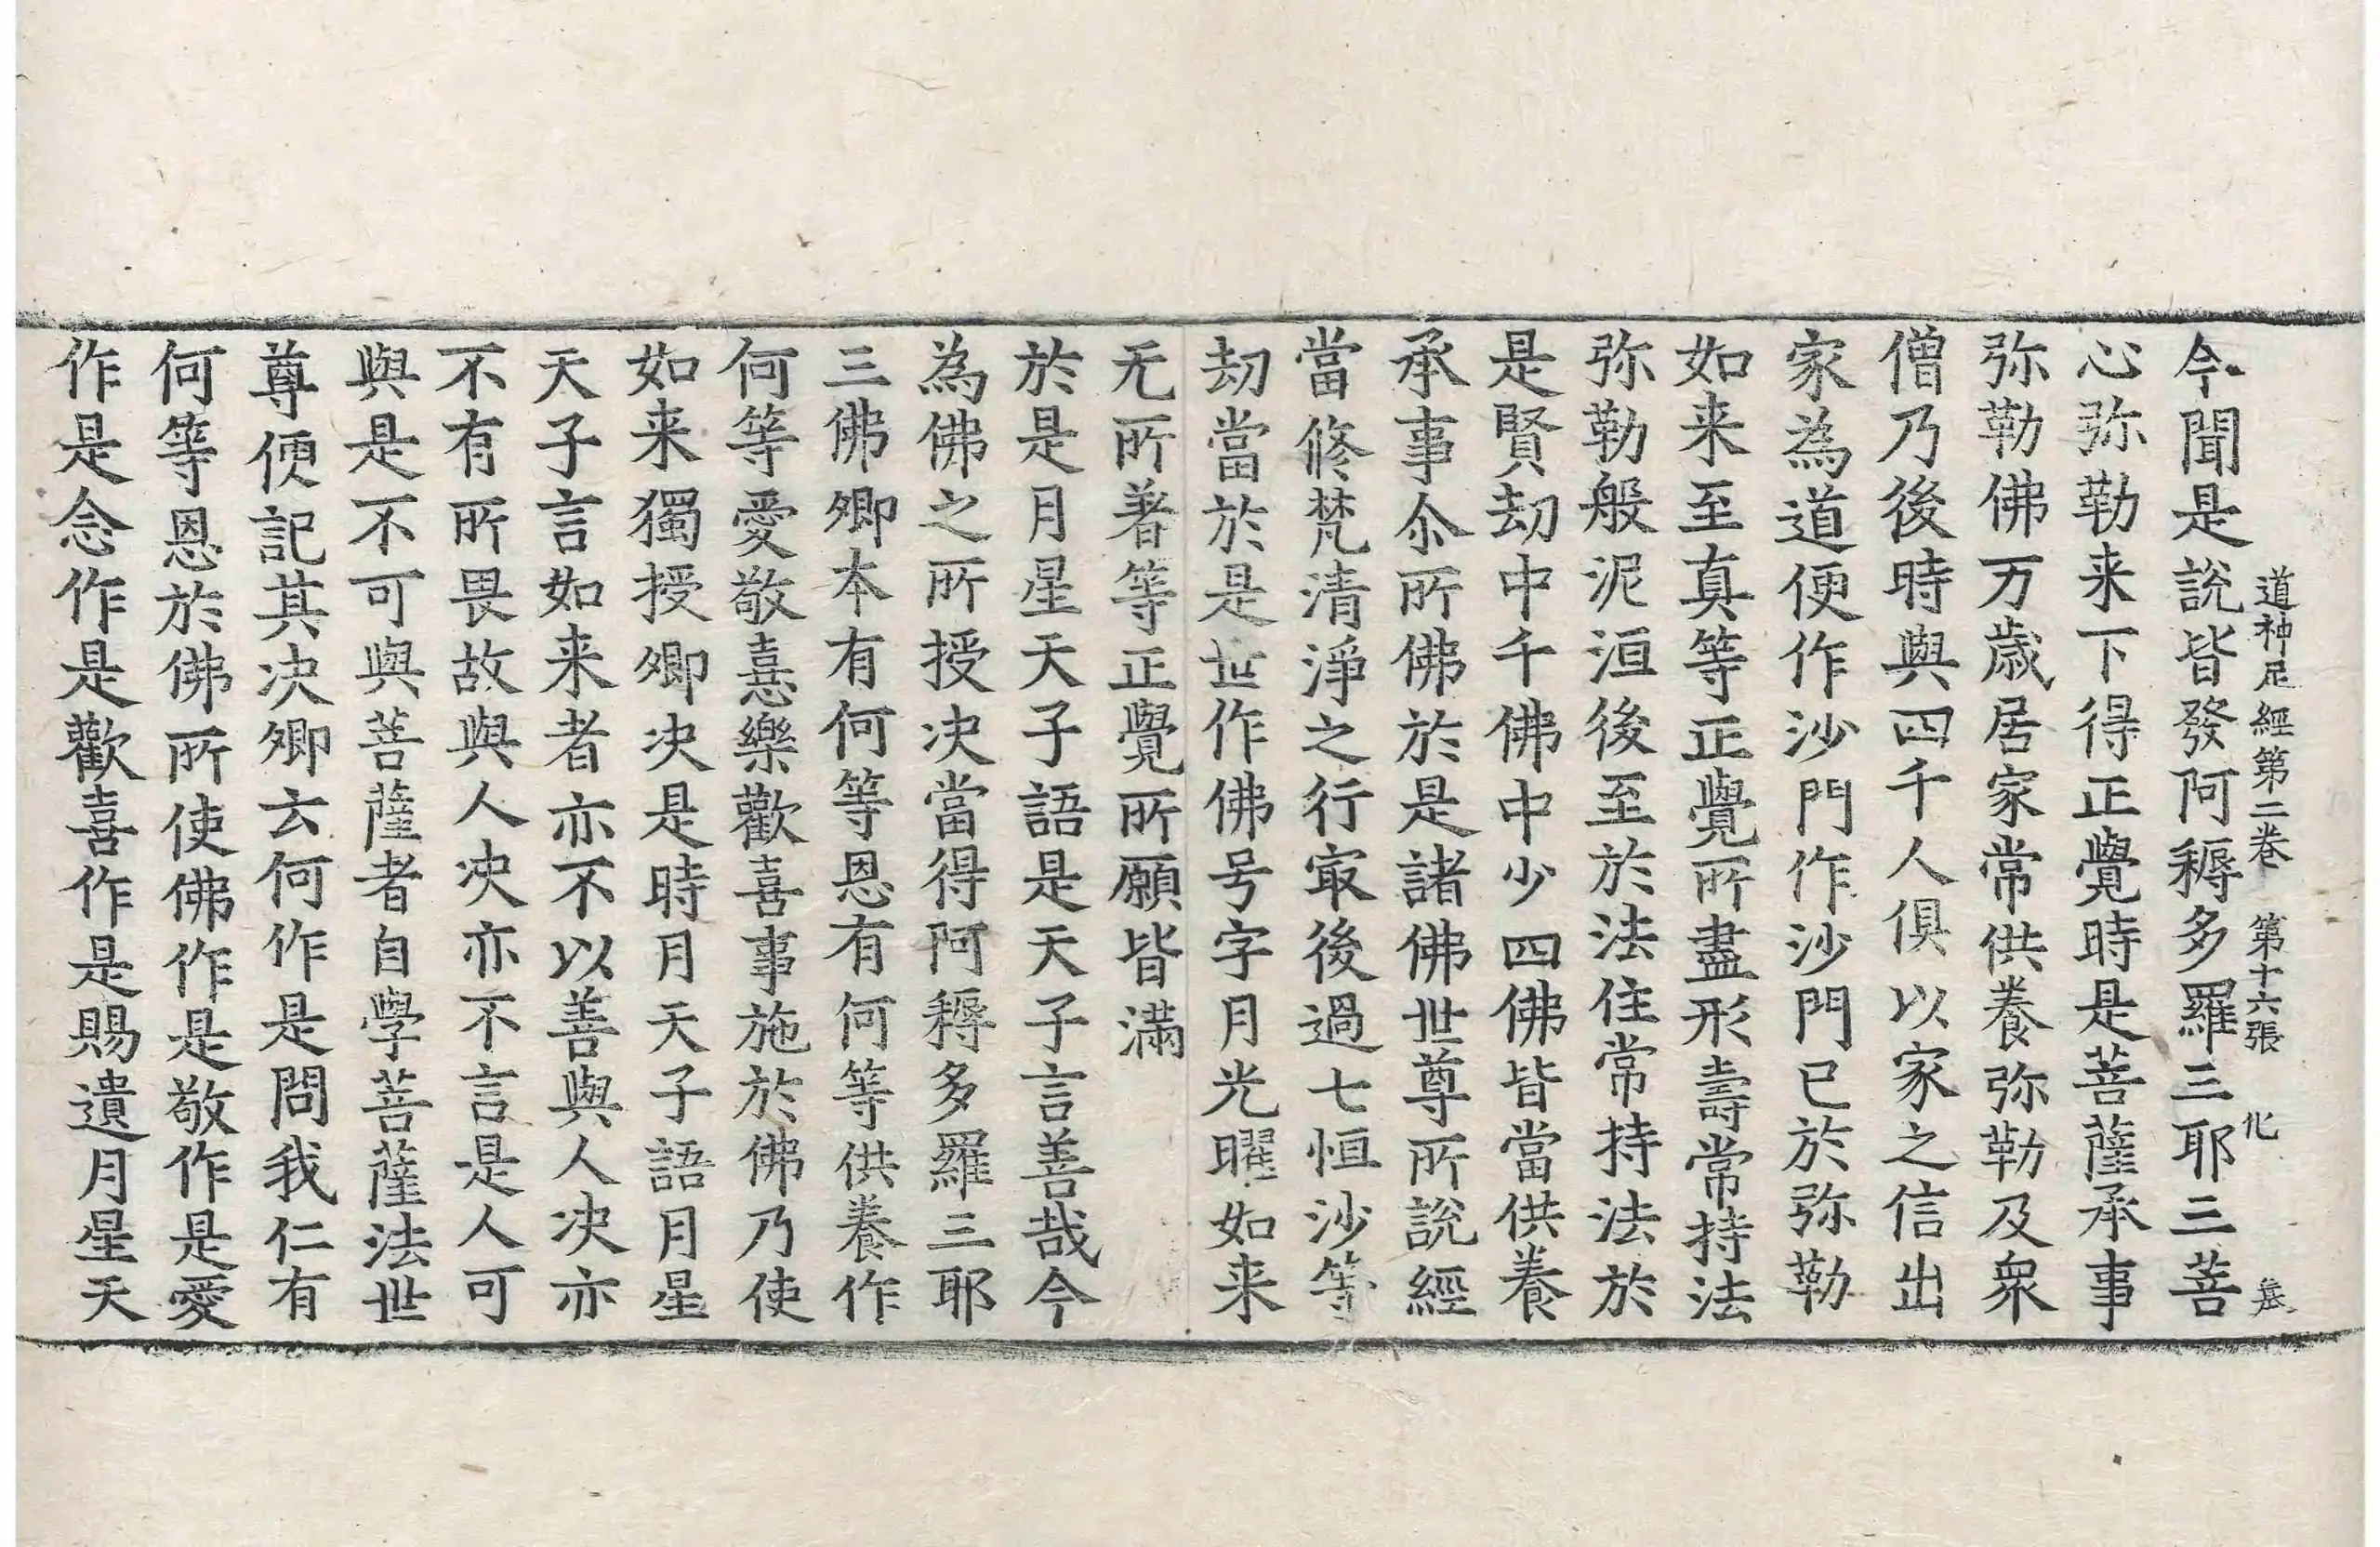 道神足經第二卷　第十六張　化
今聞是說皆發阿耨多羅三耶三菩
心弥勒来下得正覺時是菩薩承事
弥勒佛万歳居家常供養弥勒及衆
僧乃後時與四千人俱以家之信出
家為道便作沙門作沙門已於弥勒
如来至真等正覺所盡形壽常持法
弥勒般泥洹後至於法住常持法於
是賢劫中千佛中少四佛皆當供養
承事尒所佛於是諸佛世尊所說經
當修梵清淨之行㝡後過七恒沙等
劫當於是世作佛号字月光曜如来
无所著等正覺所願皆滿
於是月星天子語是天子言善哉今
為佛之所授决當得阿耨多羅三耶
三佛卿本有何等恩有何等供養作
何等愛敬憙樂歡喜事施於佛乃使
如来獨授卿决是時月天子語月星
天子言如来者亦不以善與人决亦
不有所畏故與人决亦不言是人可
與是不可與菩薩者自學菩薩法世
尊便記其决卿云何作是問我仁有
何等恩於佛所使佛作是敬作是愛
作是念作是歡喜作是賜遺月星天